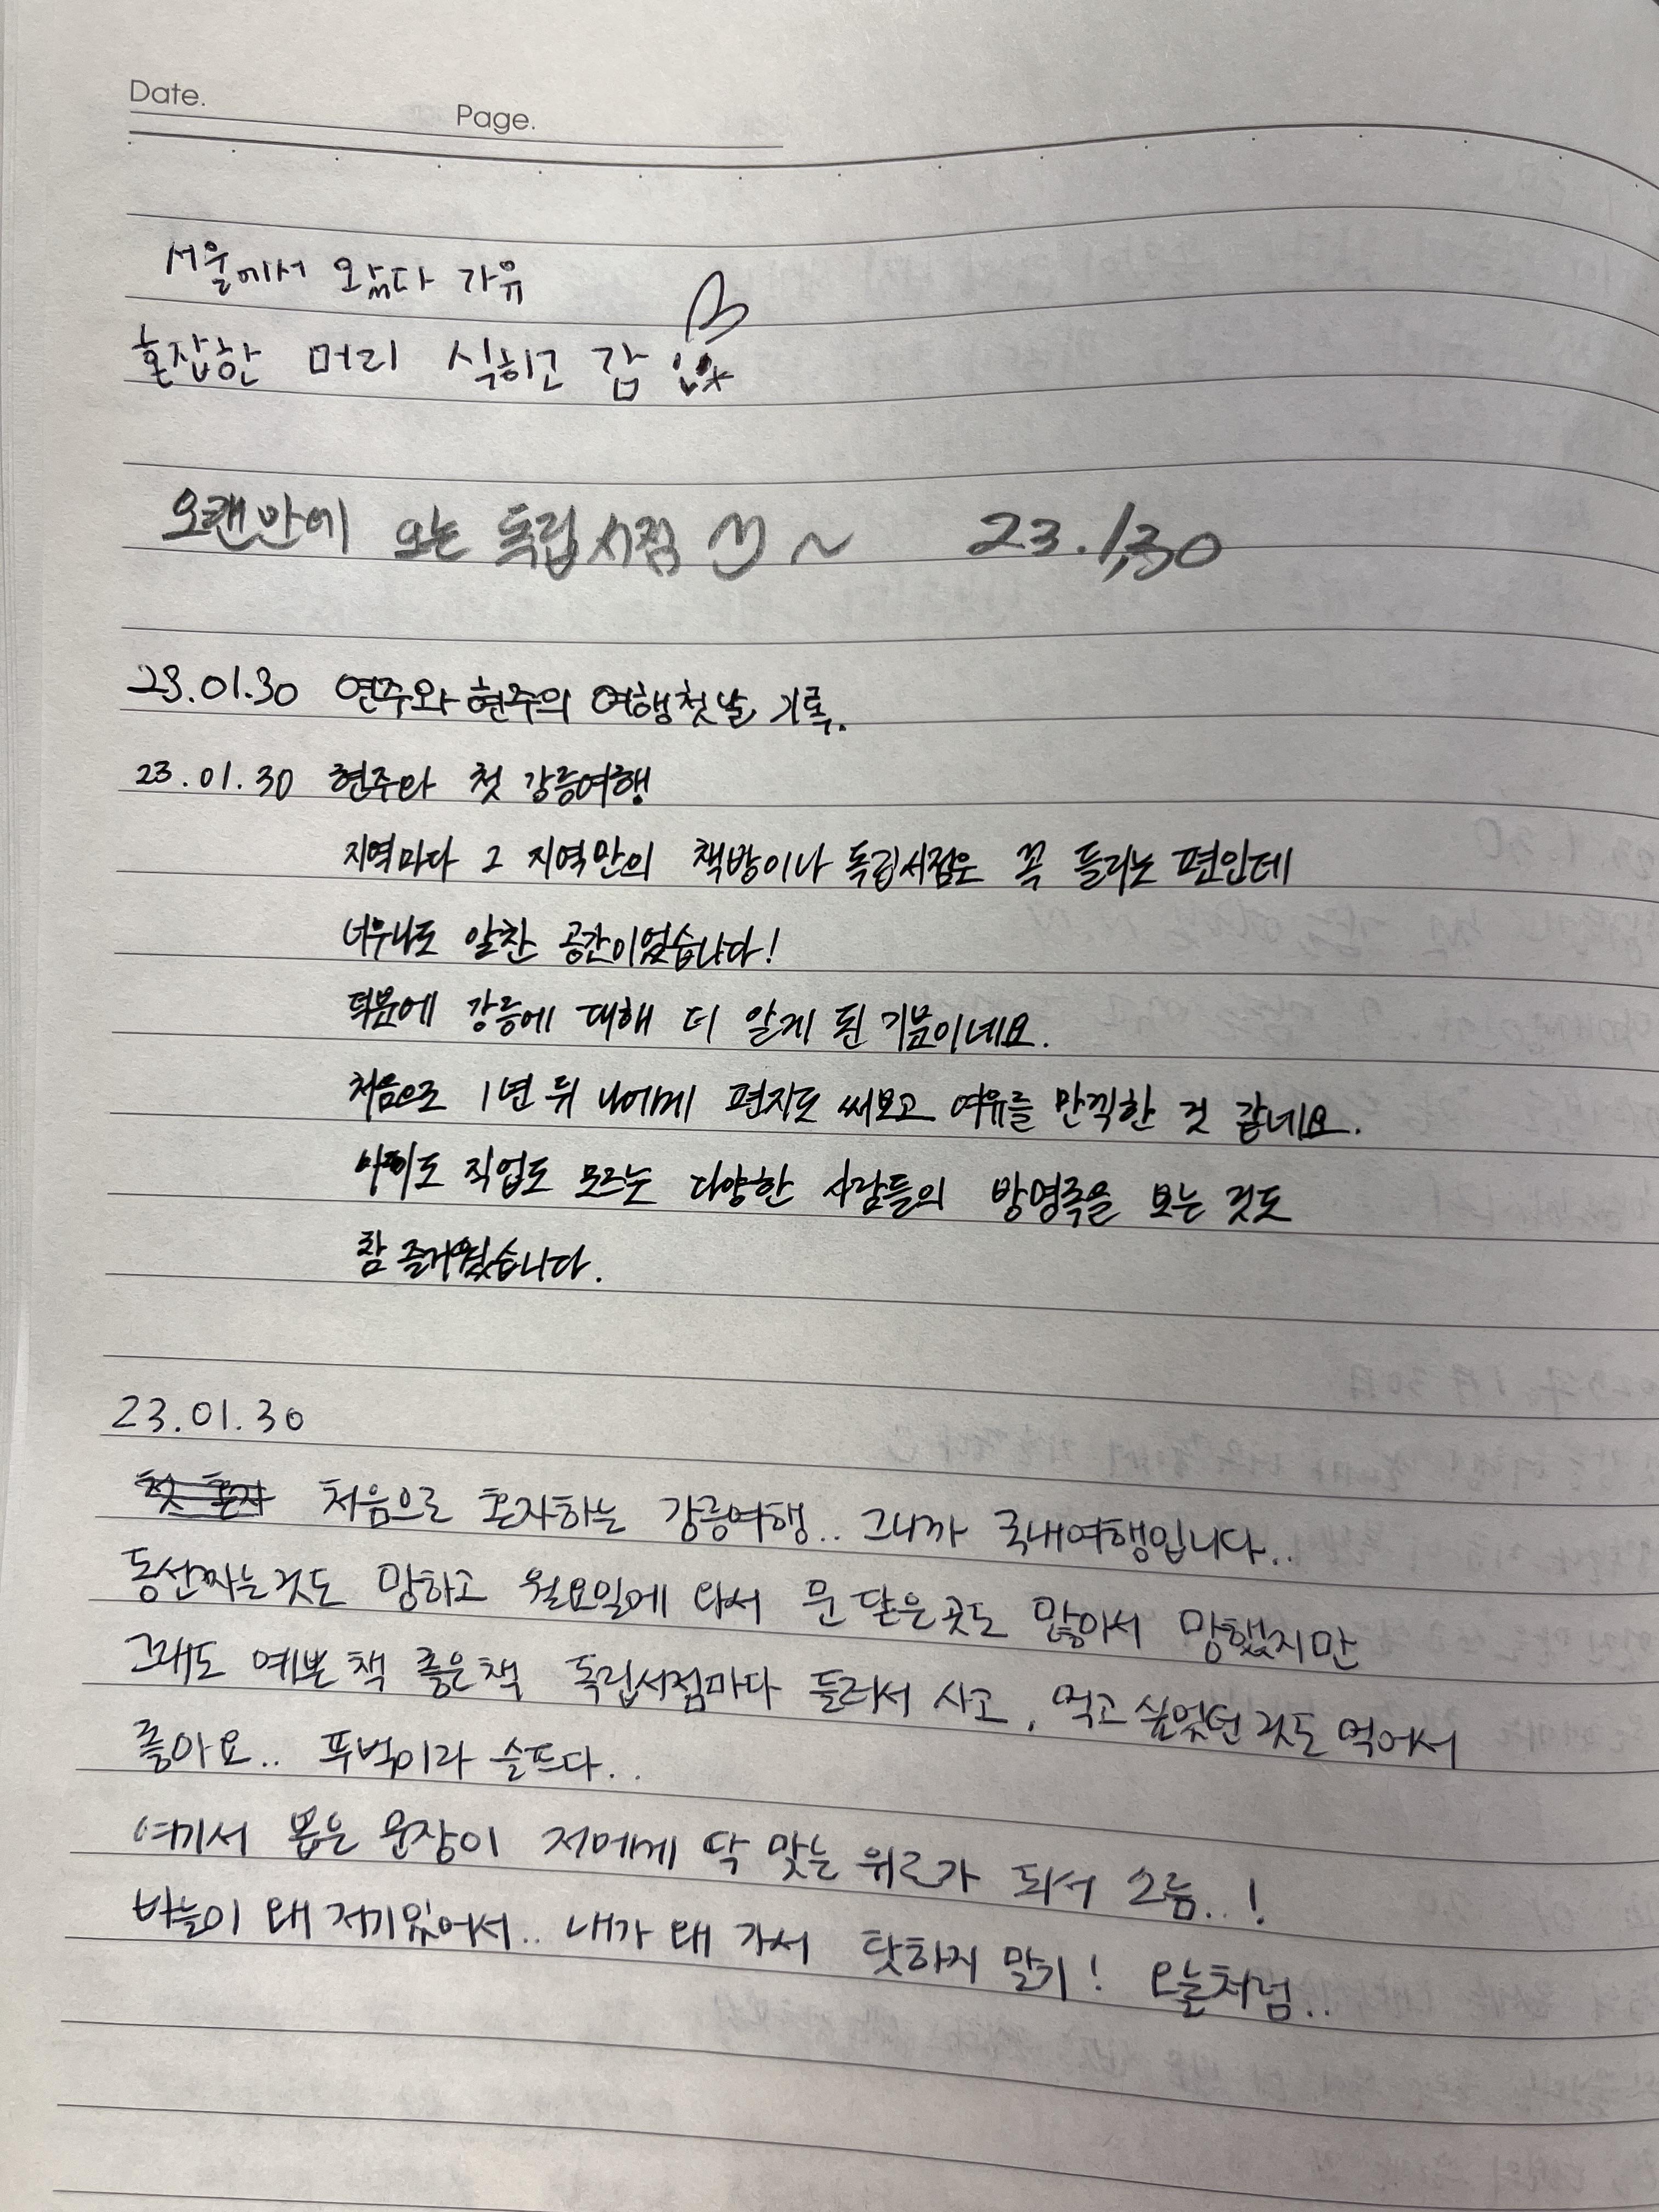 Date.
Page.
서울에서 왔다 가유
혼잡한 머리 식히고 감
오랜만에 오는 독립서점 ~ 23.1.30
23.01.30 연주와 현주의 여행 첫날 기록.
23.01.30 현주와 첫 강릉여행
지역마다 그 지역만의 책방이나 독립서점은 꼭 들리는 편인데
너무나도 알찬 공간이었습니다!
덕분에 강릉에 대해 더 알게 된 기분이네요.
처음으로 1년 뒤 나에게 편지도 써보고 여유를 만끽한 것 같네요.
직업도 모르는 다양한 사람들의 방명록을 보는 것도
참 즐거웠습니다.
23.01.30
첫 혼자 처음으로 혼자하는 강릉여행.. 그니까 국내여행입니다..
동선짜는것도 망하고 월요일에 와서 문 닫은곳도 많아서 망했지만
그래도 예쁜책 좋은책 독립서점마다 들러서 사고, 먹고싶었던것도 먹어서
좋아요.. 뚜벅이라 슬프다..
여기서 뽑은 문장이 저에게 딱 맞는 위로가 되서 소름..!
바늘이 왜 저기있어서.. 내가 왜 가서 탓하지 말기! 오늘처럼..